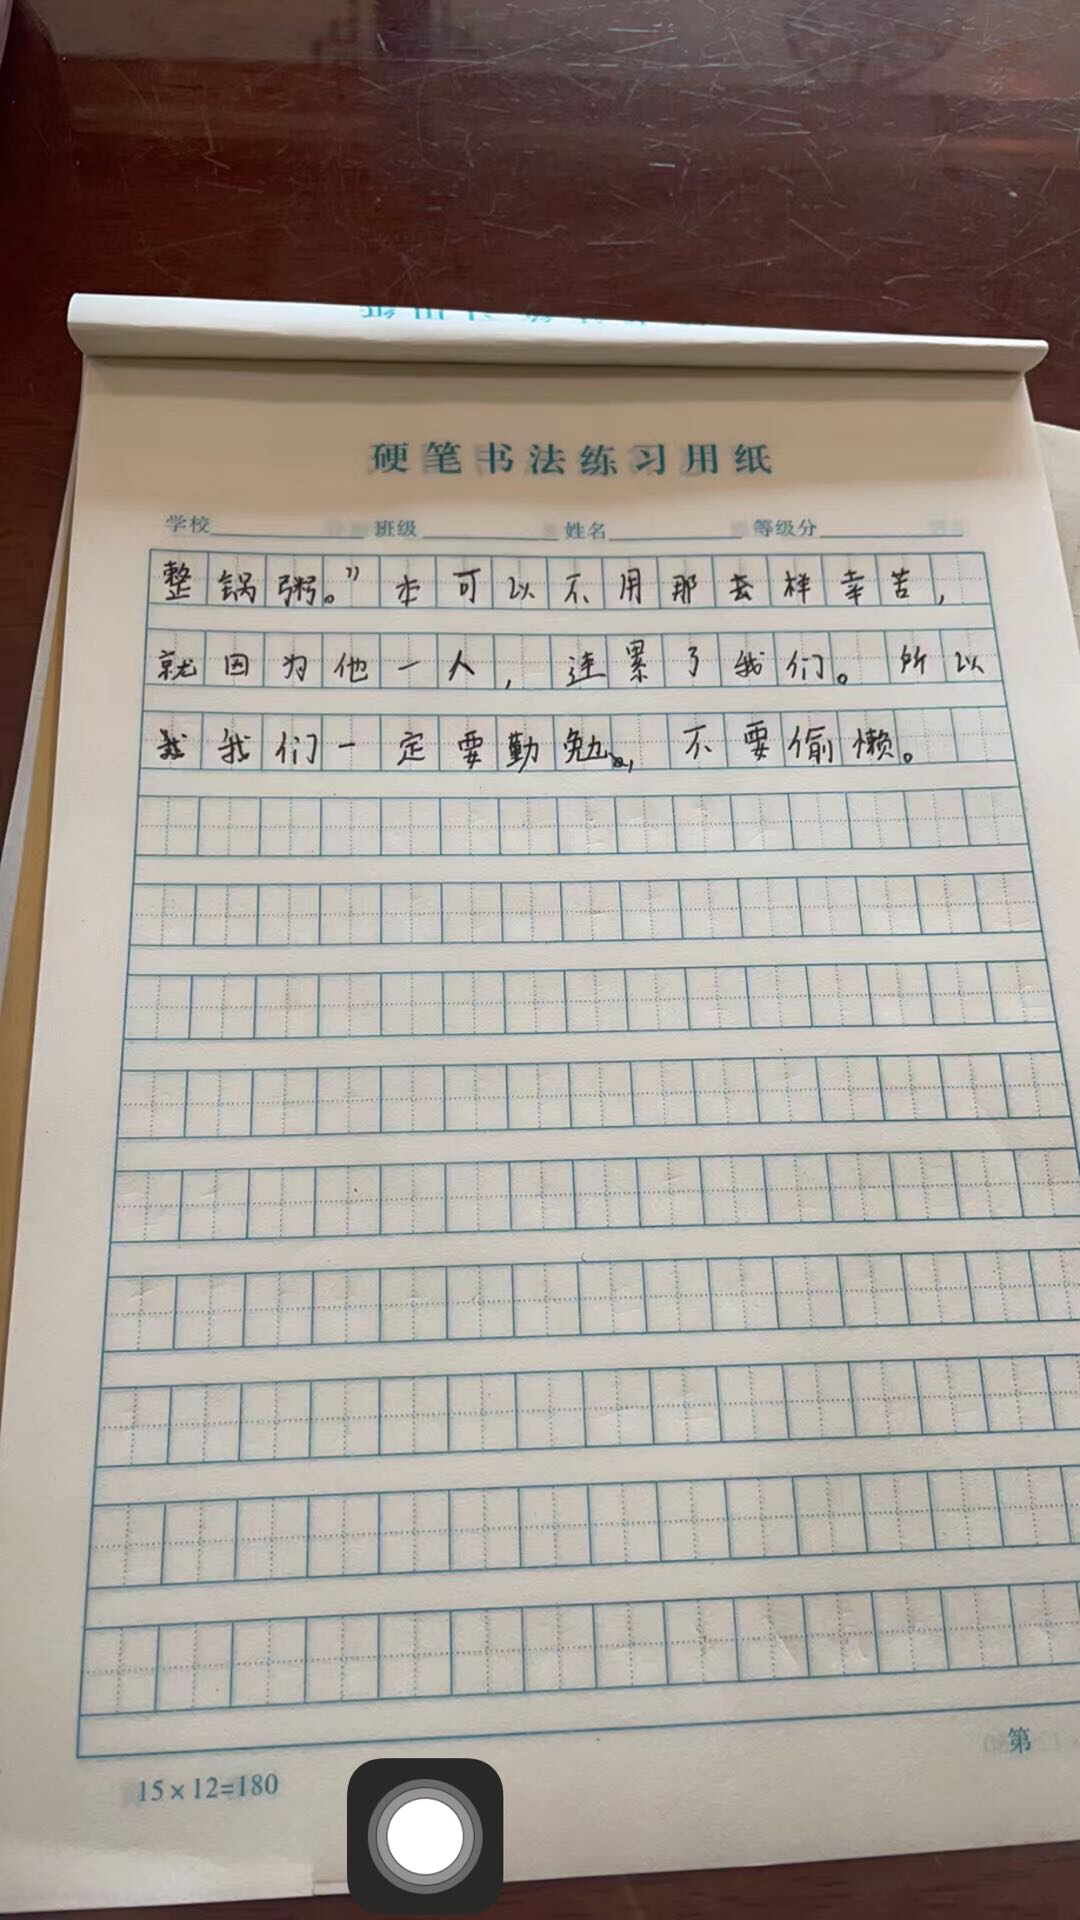 硬笔书法练习用纸
学校 班级 姓名 等级分
整锅粥。”本可以不用那去样幸苦,
就因为他一人,连累了我们。所以
我们一定要勤勉,不要偷懒。
第
15×12=180